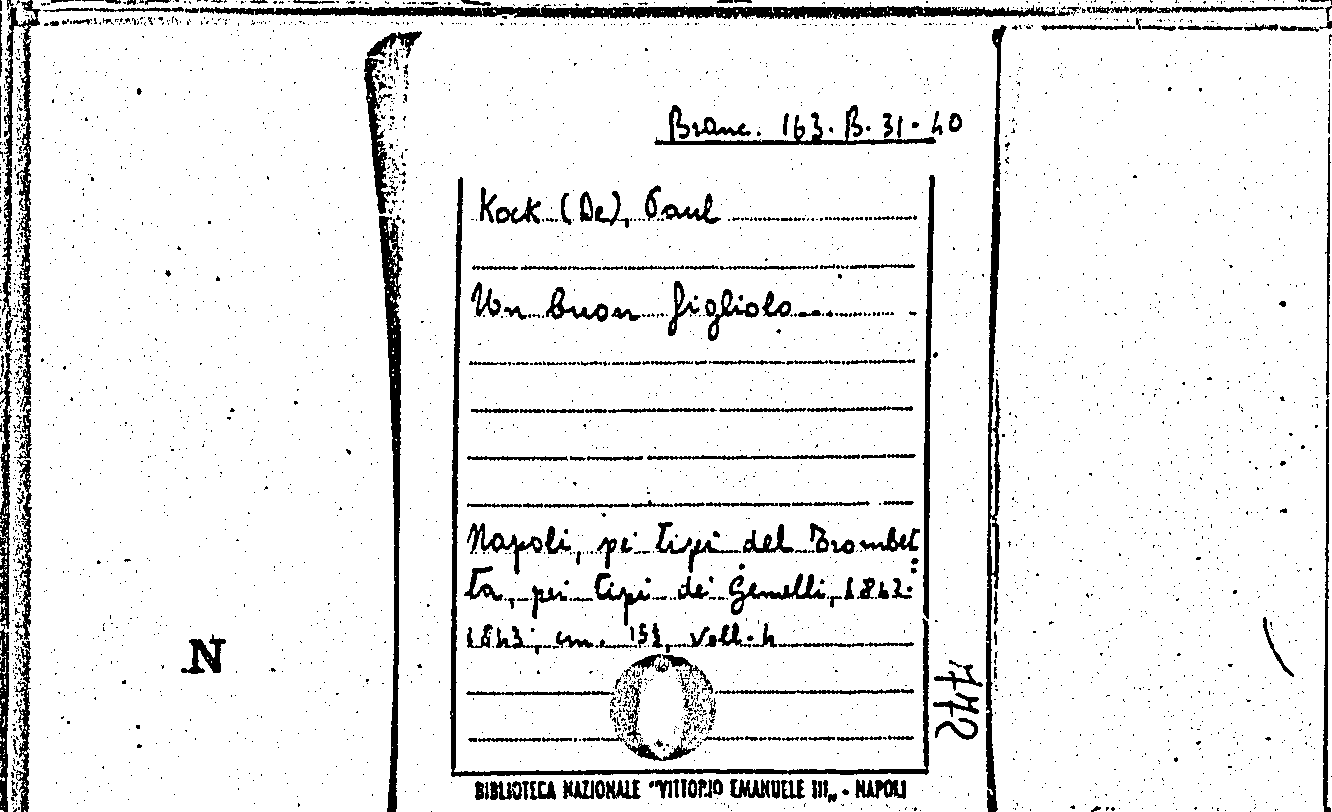 Branc. 163. B. 31-40
Kock (De), Paul
Un buon figliolo...
Napoli, pei tipi del Trombet
ta, pei tipi dei Gemelli, 1842-
1843; cm. 15½, voll. 4
N
772
BIBLIOTECA NAZIONALE "VITTORIO EMANUELE III" - NAPOLI